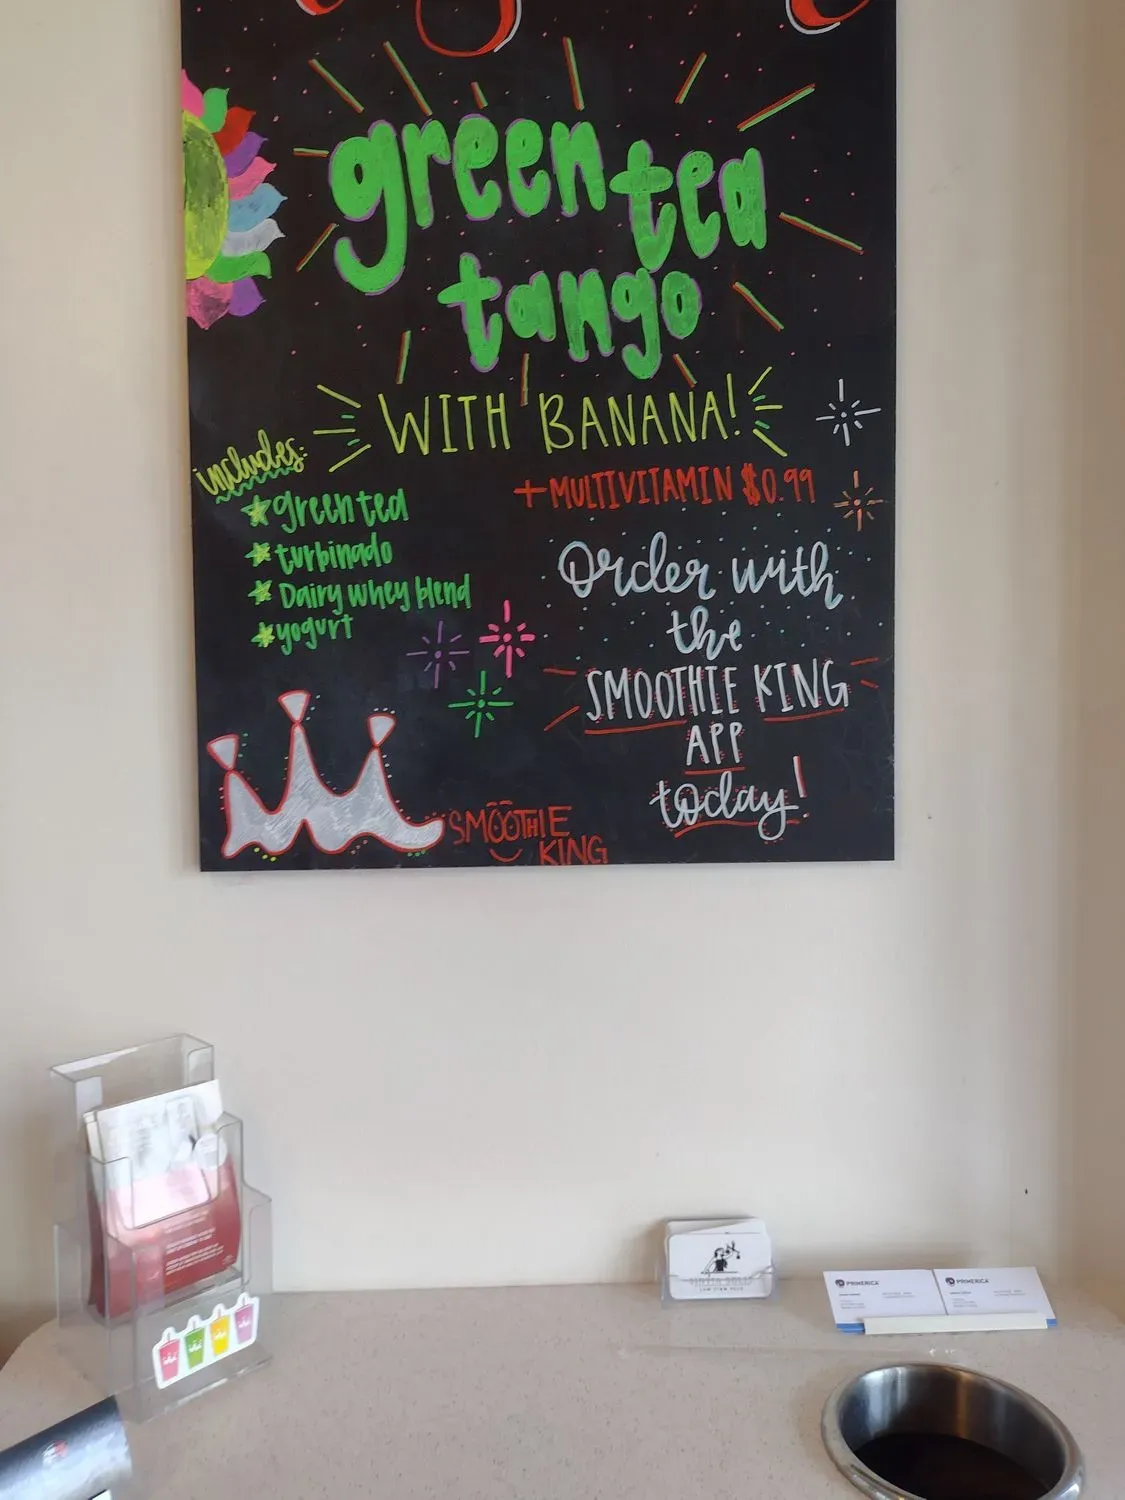 green tea
tango
WITH BANANA!
includes:
green tea
turbinado
Dairy whey blend
yogurt
+MULTIVITAMIN $0.99
Order with
the
SMOOTHIE KING
APP
today!
SMOOTHIE
KING
PRIMERICA
PRIMERICA